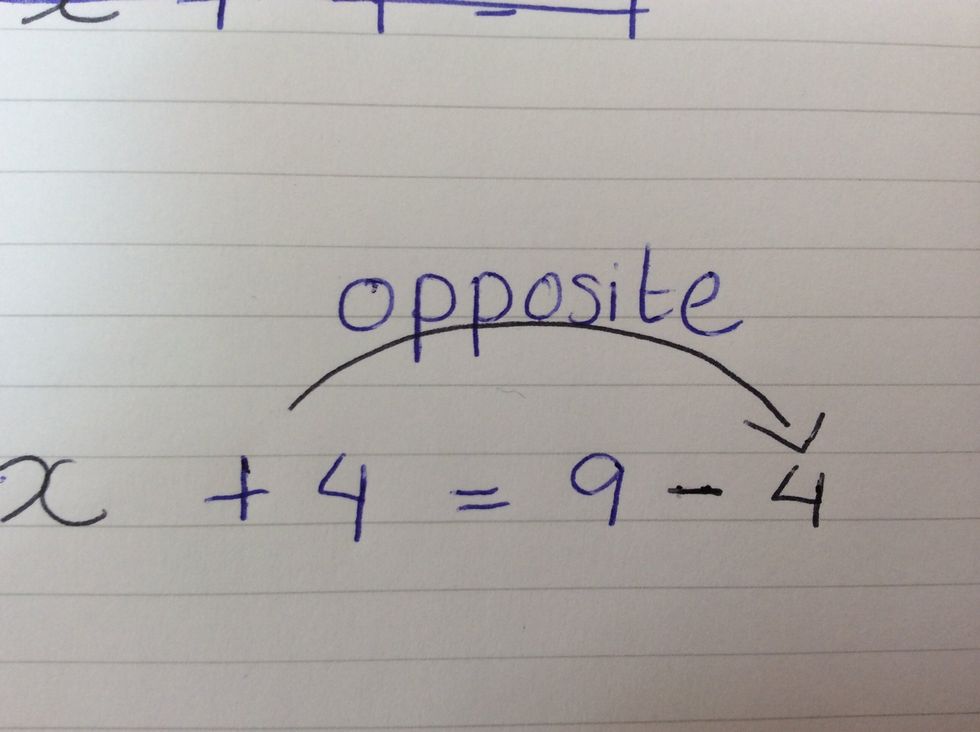 opposite
x + 4 = 9 - 4